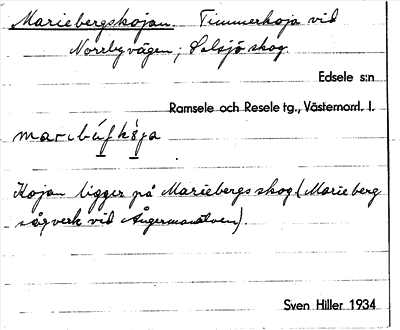 Mariebergskojan. Timmerkoja vid
Norrbyvägen, Solsjö skog.
Edsele s:n
Ramsele och Resele tg., Västernorrl. l.
Kojan ligger på Mariebergs skog (Marieberg
sågverk vid Ångermanälven).
Sven Hiller 1934